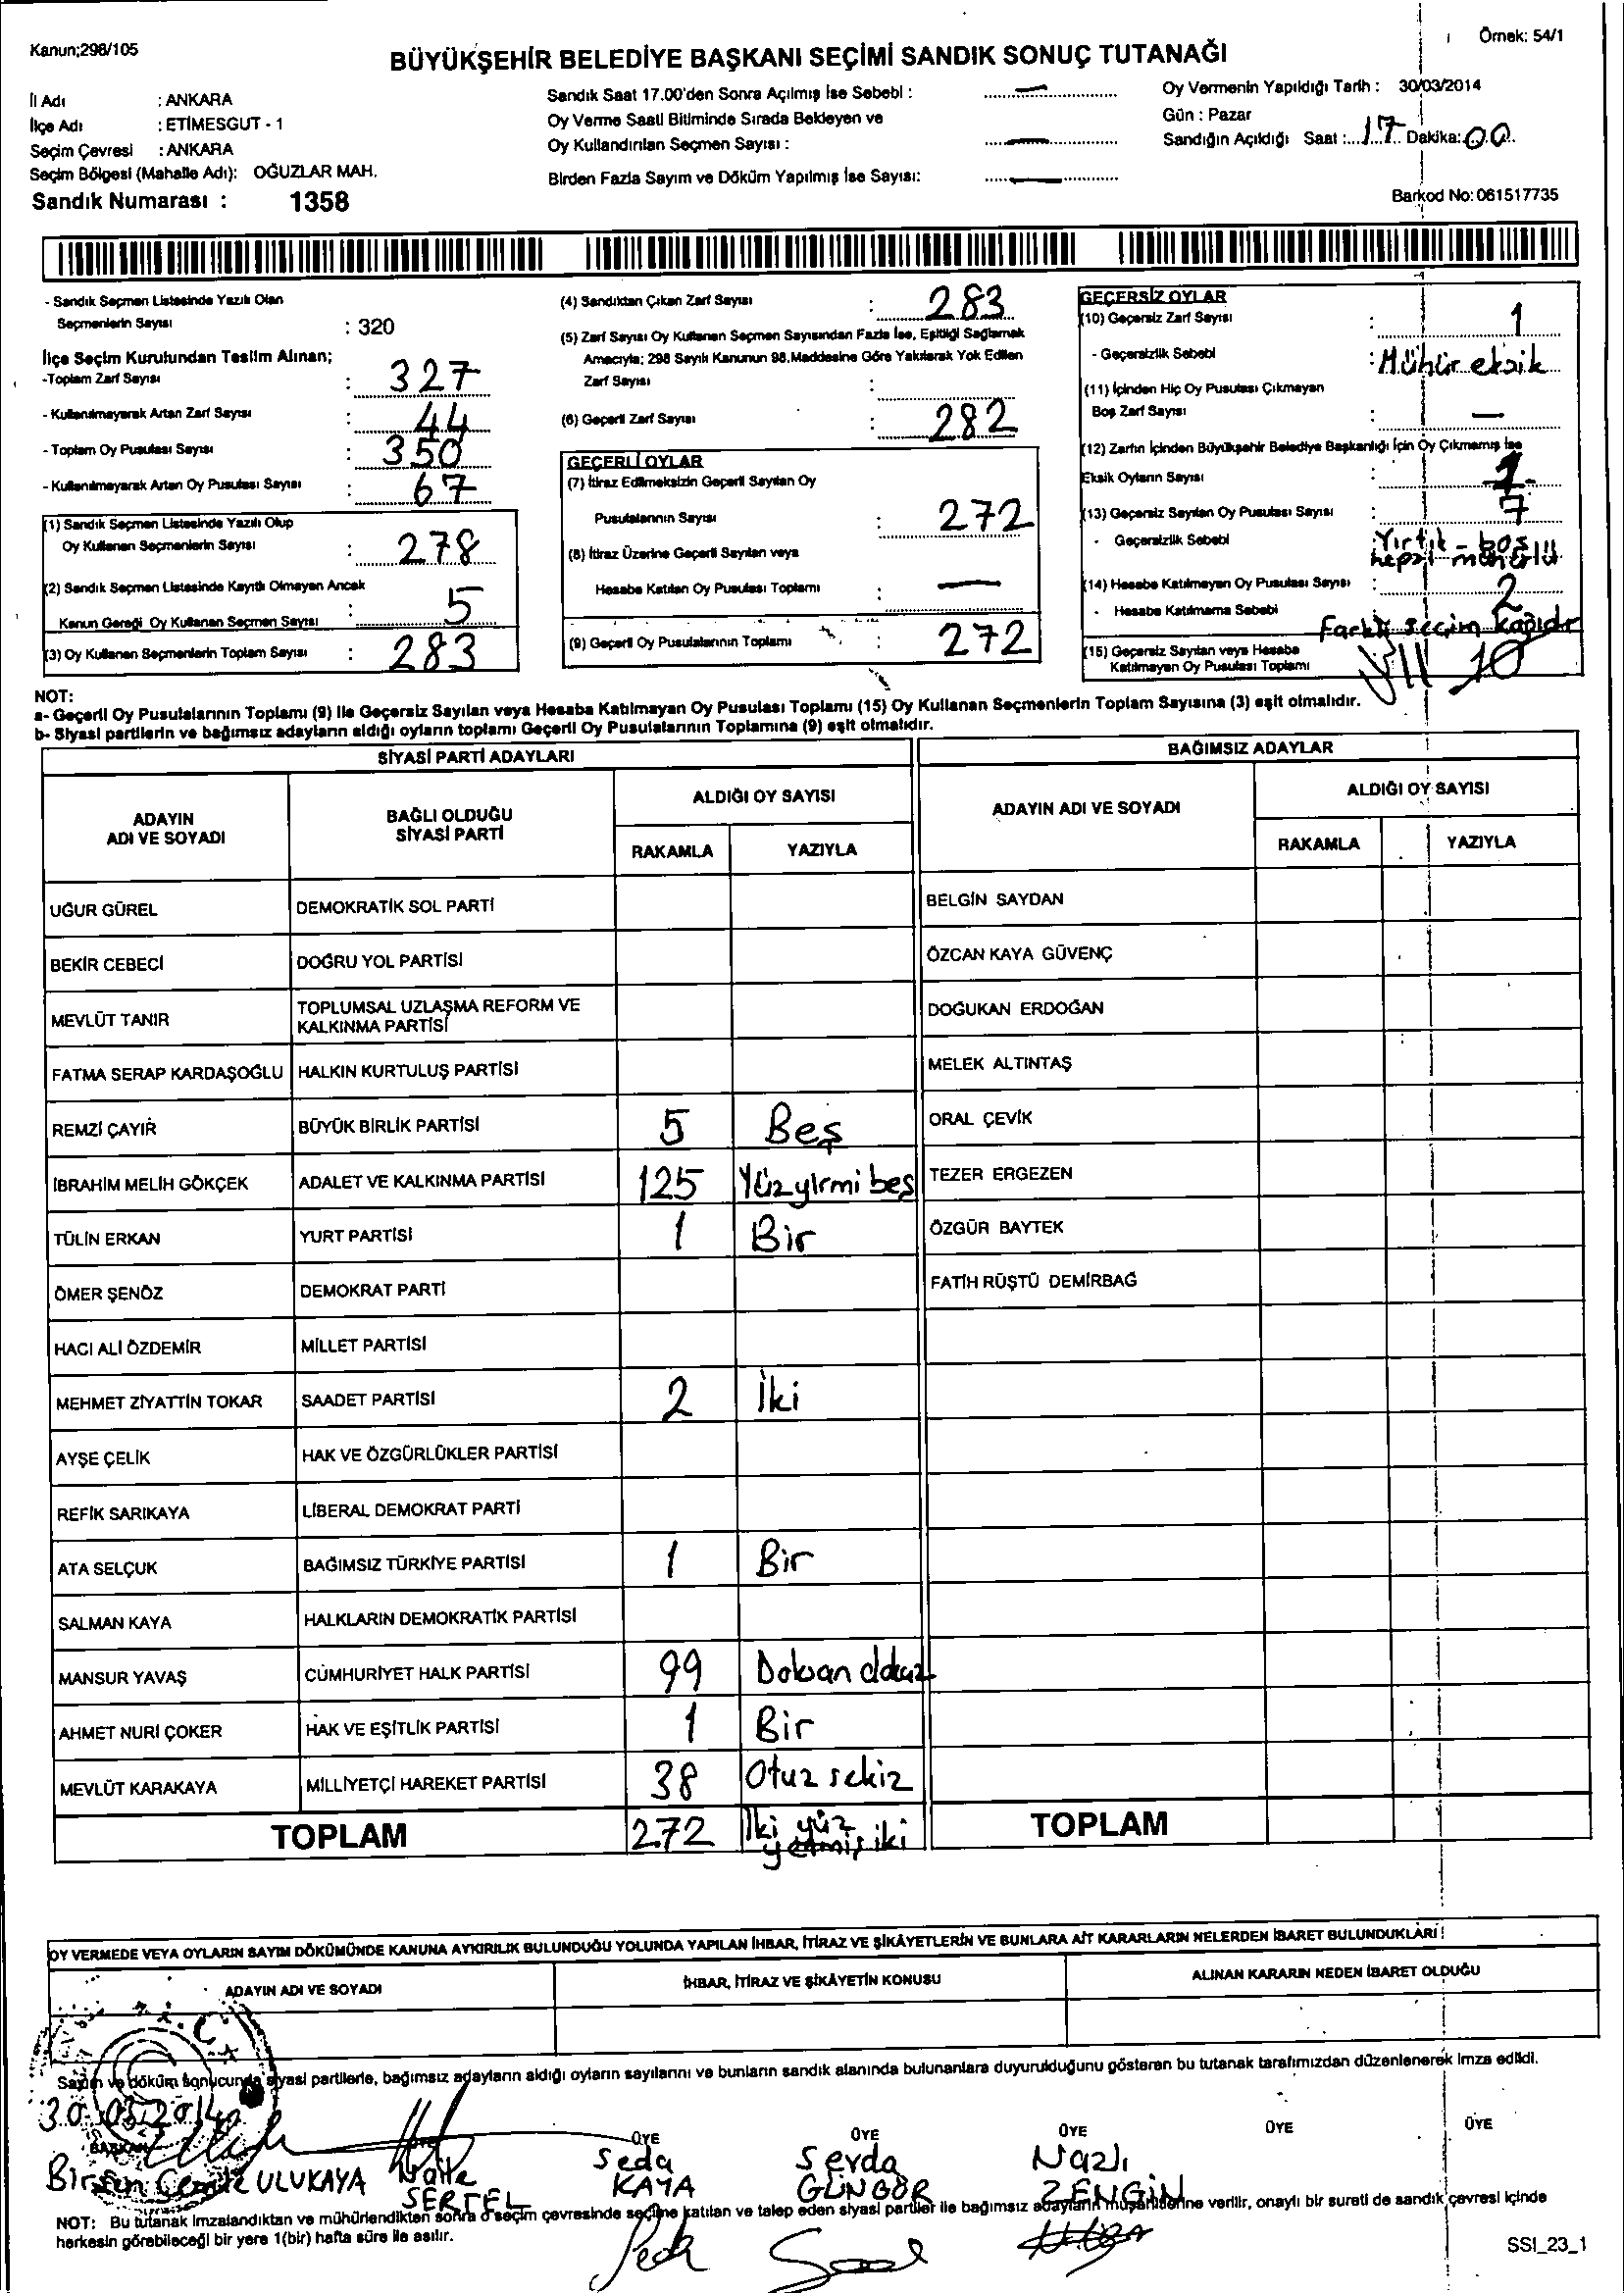 Kanun;298/105
Örnek: 54/1
BÜYÜKŞEHİR BELEDİYE BAŞKANI SEÇİMİ SANDIK SONUÇ TUTANAĞI
İl Adı : ANKARA
İlçe Adı : ETİMESGUT - 1
Seçim Çevresi : ANKARA
Seçim Bölgesi (Mahalle Adı): OĞUZLAR MAH.
Sandık Numarası : 1358
Sandık Saat 17.00'den Sonra Açılmış İse Sebebi : —
Oy Verme Saati Bitiminde Sırada Bekleyen ve
Oy Kullandırılan Seçmen Sayısı : —
Birden Fazla Sayım ve Döküm Yapılmış İse Sayısı: —
Oy Vermenin Yapıldığı Tarih : 30/03/2014
Gün : Pazar
Sandığın Açıldığı Saat : 17 Dakika: 00
Barkod No: 061517735
- Sandık Seçmen Listesinde Yazılı Olan
Seçmenlerin Sayısı : 320
İlçe Seçim Kurulundan Teslim Alınan;
-Toplam Zarf Sayısı : 327
- Kullanılmayarak Artan Zarf Sayısı : 44
- Toplam Oy Pusulası Sayısı : 350
- Kullanılmayarak Artan Oy Pusulası Sayısı : 67
(1) Sandık Seçmen Listesinde Yazılı Olup
Oy Kullanan Seçmenlerin Sayısı : 278
(2) Sandık Seçmen Listesinde Kayıtlı Olmayan Ancak
Kanun Gereği Oy Kullanan Seçmen Sayısı : 5
(3) Oy Kullanan Seçmenlerin Toplam Sayısı : 283
(4) Sandıktan Çıkan Zarf Sayısı : 283
(5) Zarf Sayısı Oy Kullanan Seçmen Sayısından Fazla İse, Eşitliği Sağlamak
Amacıyla; 298 Sayılı Kanunun 98.Maddesine Göre Yakılarak Yok Edilen
Zarf Sayısı :
(6) Geçerli Zarf Sayısı : 282
GEÇERLİ OYLAR
(7) İtiraz Edilmeksizin Geçerli Sayılan Oy
Pusulalarının Sayısı : 272
(8) İtiraz Üzerine Geçerli Sayılan veya
Hesaba Katılan Oy Pusulası Toplamı : —
(9) Geçerli Oy Pusulalarının Toplamı : 272
GEÇERSİZ OYLAR
(10) Geçersiz Zarf Sayısı : 1
- Geçersizlik Sebebi : Mühür eksik
(11) İçinden Hiç Oy Pusulası Çıkmayan
Boş Zarf Sayısı : —
(12) Zarfın İçinden Büyükşehir Belediye Başkanlığı İçin Oy Çıkmamış İse
Eksik Oyların Sayısı : 1
(13) Geçersiz Sayılan Oy Pusulası Sayısı : 7
- Geçersizlik Sebebi Yırtık - boş
hepsi mühürlü
(14) Hesaba Katılmayan Oy Pusulası Sayısı : 2
- Hesaba Katılmama Sebebi Farklı seçim kağıdı
(15) Geçersiz Sayılan veya Hesaba
Katılmayan Oy Pusulası Toplamı 11 10
NOT:
a- Geçerli Oy Pusulalarının Toplamı (9) ile Geçersiz Sayılan veya Hesaba Katılmayan Oy Pusulası Toplamı (15) Oy Kullanan Seçmenlerin Toplam Sayısına (3) eşit olmalıdır.
b- Siyasi partilerin ve bağımsız adayların aldığı oyların toplamı Geçerli Oy Pusulalarının Toplamına (9) eşit olmalıdır.
SİYASİ PARTİ ADAYLARI
BAĞIMSIZ ADAYLAR
ADAYIN ADI VE SOYADI
BAĞLI OLDUĞU SİYASİ PARTİ
ALDIĞI OY SAYISI
RAKAMLA YAZIYLA
ADAYIN ADI VE SOYADI
ALDIĞI OY SAYISI
RAKAMLA YAZIYLA
UĞUR GÜREL DEMOKRATİK SOL PARTİ BELGİN SAYDAN
BEKİR CEBECİ DOĞRU YOL PARTİSİ ÖZCAN KAYA GÜVENÇ
MEVLÜT TANIR TOPLUMSAL UZLAŞMA REFORM VE KALKINMA PARTİSİ DOĞUKAN ERDOĞAN
FATMA SERAP KARDAŞOĞLU HALKIN KURTULUŞ PARTİSİ MELEK ALTINTAŞ
REMZİ ÇAYIR BÜYÜK BİRLİK PARTİSİ 5 Beş ORAL ÇEVİK
İBRAHİM MELİH GÖKÇEK ADALET VE KALKINMA PARTİSİ 125 Yüzyirmi beş TEZER ERGEZEN
TÜLİN ERKAN YURT PARTİSİ 1 Bir ÖZGÜR BAYTEK
ÖMER ŞENÖZ DEMOKRAT PARTİ FATİH RÜŞTÜ DEMİRBAĞ
HACI ALİ ÖZDEMİR MİLLET PARTİSİ
MEHMET ZİYATTİN TOKAR SAADET PARTİSİ 2 İki
AYŞE ÇELİK HAK VE ÖZGÜRLÜKLER PARTİSİ
REFİK SARIKAYA LİBERAL DEMOKRAT PARTİ
ATA SELÇUK BAĞIMSIZ TÜRKİYE PARTİSİ 1 Bir
SALMAN KAYA HALKLARIN DEMOKRATİK PARTİSİ
MANSUR YAVAŞ CUMHURİYET HALK PARTİSİ 99 Doksan dokuz
AHMET NURİ ÇOKER HAK VE EŞİTLİK PARTİSİ 1 Bir
MEVLÜT KARAKAYA MİLLİYETÇİ HAREKET PARTİSİ 38 Otuz sekiz
TOPLAM 272 İki yüz yetmiş iki TOPLAM
OY VERMEDE VEYA OYLARIN SAYIM DÖKÜMÜNDE KANUNA AYKIRILIK BULUNDUĞU YOLUNDA YAPILAN İHBAR, İTİRAZ VE ŞİKÂYETLERİN VE BUNLARA AİT KARARLARIN NELERDEN İBARET BULUNDUKLARI
ADAYIN ADI VE SOYADI İHBAR, İTİRAZ VE ŞİKÂYETİN KONUSU ALINAN KARARIN NEDEN İBARET OLDUĞU
Sayım ve döküm sonucunda siyasi partilerle, bağımsız adayların aldığı oyların sayılarını ve bunların sandık alanında bulunanlara duyurulduğunu gösteren bu tutanak tarafımızdan düzenlenerek imza edildi.
30.03.2014
BAŞKAN ÜYE ÜYE ÜYE ÜYE ÜYE
ULUKAYA
SERTEL
Seda KAYA
Serda GÜNGÖR
Nazlı ZENGİN
NOT: Bu tutanak imzalandıktan ve mühürlendikten sonra o seçim çevresinde seçime katılan ve talep eden siyasi partiler ile bağımsız adayların müşahitlerine verilir, onaylı bir sureti de sandık çevresi içinde
herkesin görebileceği bir yere 1(bir) hafta süre ile asılır.
SSI_23_1